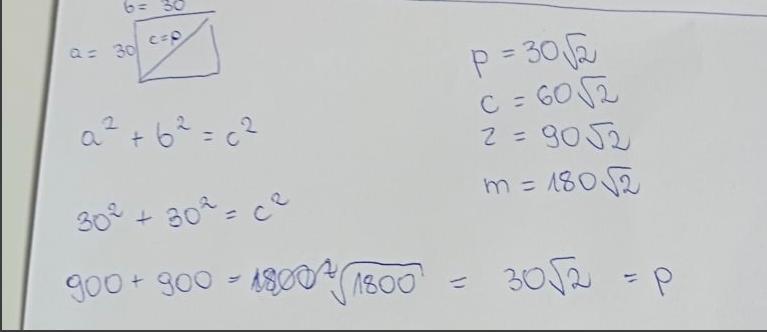 b = 30
a = 30
c=p
a² + b² = c²
30² + 30² = c²
900 + 900 = 1800 ²√1800 = 30√2 = p
p = 30√2
c = 60√2
z = 90√2
m = 180√2